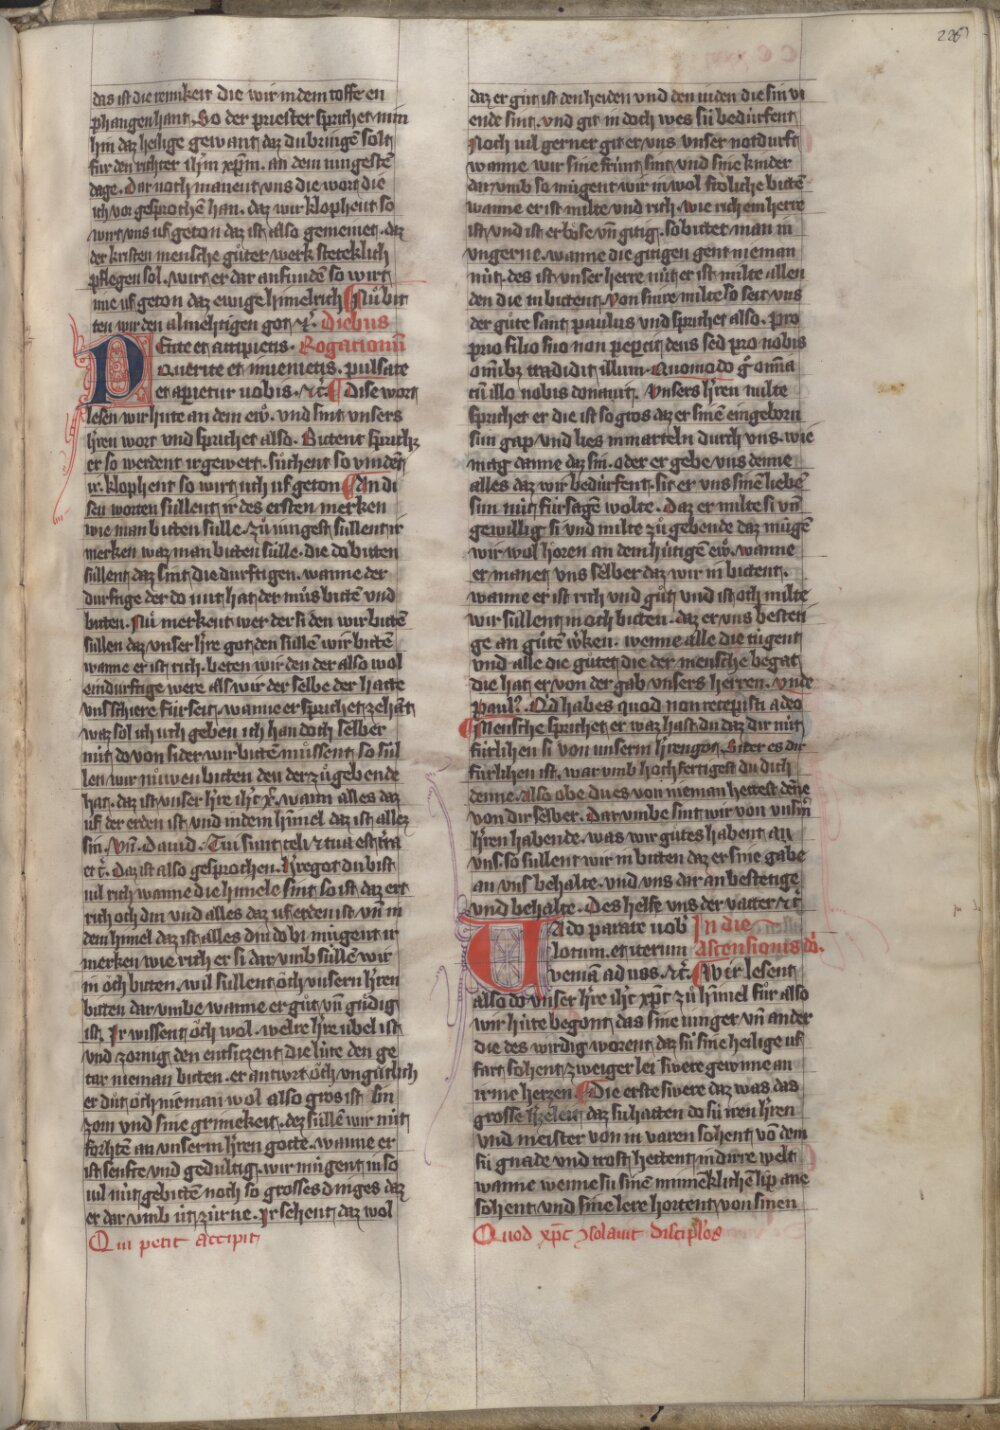 226
das ist die reinikeit die wir in dem toffe en
phangen hant. So der priester sprichet nim
hin daz heilige gewant daz du bringen solt
für den richter ihm xpm. an dem iungesten
dage. Dar noch manent vns die wort die
ich vor gesprochē han. daz wir klophent so
wirt vns uf geton daz ist also gemeinet. daz
der kristen mensche gůter werk steteklich
pflegen sol. wirt er dar an funden so wirt
ime uf geton daz ewige himelrich Nů bit
ten wir den almehtigen got ꝛc̄. diebus
PEtite et accipietis. Rogationū
Querite et inuenietis. pulsate
et aperietur uobis. ꝛc̄. Dise wort
lesen wir hute an dem ew̄. vnd sint unsers
h̄ren wort vnd sprichet also. Bittent sprichz
er so werdent ir gewert. sůchent so vindēt
ir. klophent so wirt uch uf geton An di
sen worten sullent ir des ersten merken
wie man bitten sulle. zů iungest sullent ir
merken waz man bitten sülle. die do bitten
sullent daz sint die durftigen. wanne der
durftige der do niut hat der můs bittē vnd
bitten. Nů merkent wer der si den wir bittē
sullen daz vnser h̄re got den sullē wir bittē
wanne er ist rich. beten wir den der also wol
ein durftige were als wir der selbe der hatte
vns schiere für seit. wanne er sprichet zehāt
waz sol ich uch geben ich han doch selber
nüt do von sider wir bittē müssent. so sül
len wir nüwen bitten den der zů gebende
hat. daz ist vnser h̄re ih̄c xp̄. wann alles daz
uf der erden ist vnd in dem himel daz ist allez
sin. Vn̄. Dauid. Tui sunt celi ⁊ tua est t̄ra
et c̄. Daz ist also gesprochen. h̄re got du bist
uil rich wanne die himele sint so ist daz ert
rich och din vnd alles daz uf erden ist vn̄ in
dem himel daz ist alles din do bi mügent ir
merken wie rich er si dar vmb süllē wir
in och bitten. wil sullent och vnsern h̄ren
bitten dar vmbe wanne er gůt vn̄ gnedig
ist. Ir wissent och wol. welre h̄re ubel ist
vnd zornig den entsitzent die lüte den ge
tar nieman bitten. er antwrt och vngütlich
er dut och nieman wol also gros ist sin
zorn vnd sine grimekeit. dez süllē wir nüt
förhtē an vnserm h̄ren gotte. wanne er
ist senfte vnd gedultig. wir mügent in so
uil nüt gebittē noch so grosses dinges daz
er dar vmb üt zürne. Ir sehent daz wol
Qui petit accipit
daz er gůt ist den heiden vnd den iuden die sin vi
ende sint. vnd git in doch wes sü bedürfent
Noch uil gerner git er vns vnser notdurft
wanne wir sine frünt sint vnd sine kinder
dar vmb so mügent wir in wol froliche bittē
wanne er ist milte vnd rich. wie rich ein herre
ist vnd ist er böse vn̄ gitig. so bittet man in
vngerne. wanne die gitigen gent nieman
nüt. des ist vnser herre nüt er ist milte allen
den die in bittent. von sinre milte so seit vns
der gůte sant paulus vnd sprichet also. pro
prio filio suo non pepercit deus sed pro nobis
omībz tradidit illum. Quomodo ḡ omnia
cū illo nobis donauit. Vnsers h̄ren milte
sprichet er die ist so gros daz er sinē eingeborn
sun gap vnd lies in marteln durch vns. wie
mag danne daz sin. oder er gebe vns denne
alles daz wir bedürfent. sit er vns sinē liebē
sun nüt für sagē wolte. Daz er milte si vn̄
gewillig si vnd milte zů gebende daz mügē
wir wol horen an dem hütigē ew̄. wanne
er manet vns selber daz wir in bittent.
wanne er ist rich vnd gůt vnd ist och milte
wir sullent in och bitten. daz er vns besteti
ge an gůtē w̄ken. wenne alle die tugent
vnd alle die gůtet die der mensche begat
die hat er von der gab vnsers herren. Vnde
paul9. Qd habes quod non recepisti a deo
Mensche sprichet er waz hast du daz dir nüt
fürlihen si von vnserm h̄ren got. Siter es dir
fürlihen ist. war vmb hochfertigest du dich
denne. Also obe du es von nieman hettest dēne
von dir selber. Dar vmbe sint wir von vnsm̄
h̄ren habende. was wir gůtes habent an
vns. so sullent wir in bitten daz er sine gabe
an vns behalte. vnd vns dar an bestetige
vnd behalte. Des helfe vns der vatter ⁊ c̄
VAdo parate uob In die
locum. et iterum Ascensionis dō.
veniā ad uos. ꝛc̄. Wir lesent
also do vnser h̄re ih̄c xp̄c zů himel fůr also
wir hüte begont das sine iunger vn̄ ander
die des wirdig worent daz sü sine heilige uf
fart sohent zweiger lei swere gewinne an
irme herzen Die erste swere daz was das
grosse h̄zeleit daz sü hatten do sü iren h̄ren
vnd meister von in varen sohent vō dem
sü gnade vnd trost hettent in dirre welt
wanne wenne sü sinē minneklichē lip ane
sohent vnd sine lere hortent von sinen
Quod xp̄c ꝯsolauit disciplos